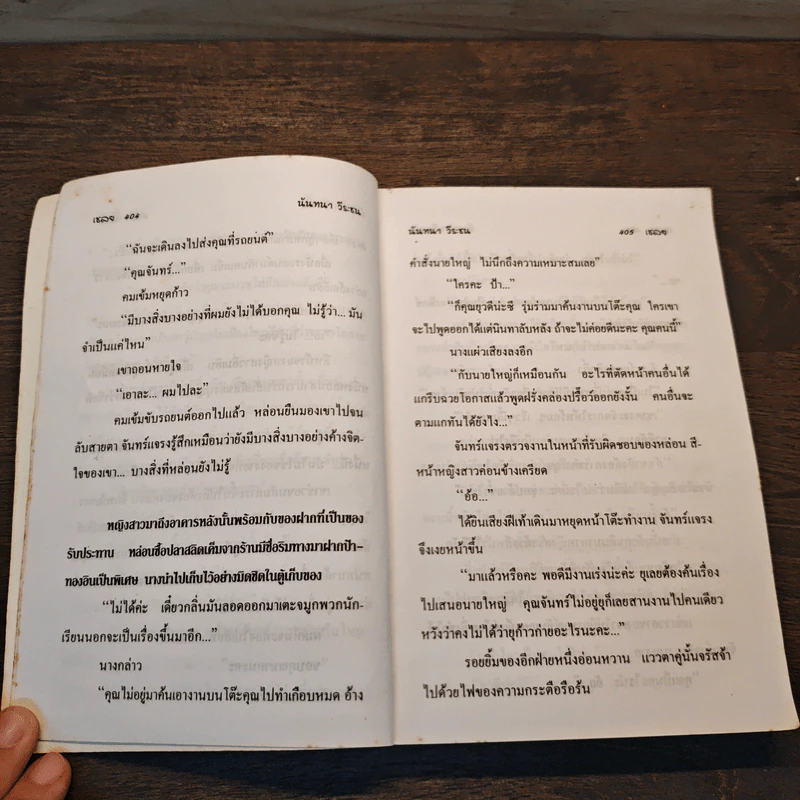 เชลย ๔๐๔ นันทนา วีระชน
“ฉันจะเดินลงไปส่งคุณที่รถยนต์”
“คุณจันทร์...”
คมเข้มหยุดก้าว
“มีบางสิ่งบางอย่างที่ผมยังไม่ได้บอกคุณ ไม่รู้ว่า... มัน
จำเป็นแค่ไหน”
เขาถอนหายใจ
“เอาละ... ผมไปละ”
คมเข้มขับรถยนต์ออกไปแล้ว หล่อนยืนมองเขาไปจน
ลับสายตา จันทร์แจรงรู้สึกเหมือนว่ายังมีบางสิ่งบางอย่างค้างจิต-
ใจของเขา... บางสิ่งที่หล่อนยังไม่รู้
หญิงสาวมาถึงอาคารหลังนั้นพร้อมกับของฝากที่เป็นของ
รับประทาน หล่อนซื้อปลาสลิดเค็มจากร้านมีชื่อริมทางมาฝากป้า-
ทองอินเป็นพิเศษ นางนำไปเก็บไว้อย่างมิดชิดในตู้เก็บของ
“ไม่ได้ค่ะ เดี๋ยวกลิ่นมันลอดออกมาเตะจมูกพวกนัก-
เรียนนอกจะเป็นเรื่องขึ้นมาอีก...”
นางกล่าว
“คุณไม่อยู่มาค้นเอางานบนโต๊ะคุณไปทำเกือบหมด อ้าง
นันทนา วีระชน ๔๐๕ เชลย
คำสั่งนายใหญ่ ไม่นึกถึงความเหมาะสมเลย”
“ใครคะ ป้า...”
“ก็คุณยุวดีน่ะซี รุ่มร่ามมาค้นงานบนโต๊ะคุณ ใครเขา
จะไปพูดออกได้แต่นินทาลับหลัง ถ้าจะไม่ค่อยดีนะคะ คุณคนนี้”
นางแผ่วเสียงลงอีก
“กับนายใหญ่ก็เหมือนกัน อะไรที่ตัดหน้าคนอื่นได้
แกรีบฉวยโอกาสแล้วพูดฝรั่งคล่องปรื๋อว์ออกยังงั้น คนอื่นจะ
ตามแกทันได้ยังไง...”
จันทร์แจรงตรวจงานในหน้าที่รับผิดชอบของหล่อน สี-
หน้าหญิงสาวค่อนข้างเครียด
“อ้อ...”
ได้ยินเสียงฝีเท้าเดินมาหยุดหน้าโต๊ะทำงาน จันทร์แจรง
จึงเงยหน้าขึ้น
“มาแล้วหรือคะ พอดีมีงานเร่งน่ะค่ะ ยุเลยต้องค้นเรื่อง
ไปเสนอนายใหญ่ คุณจันทร์ไม่อยู่ยุก็เลยสานงานไปคนเดียว
หวังว่าคงไม่ได้ว่ายุก้าวก่ายอะไรนะคะ...”
รอยยิ้มของอีกฝ่ายหนึ่งอ่อนหวาน แววตาคู่นั้นจรัสจ้า
ไปด้วยไฟของความกระตือรือร้น